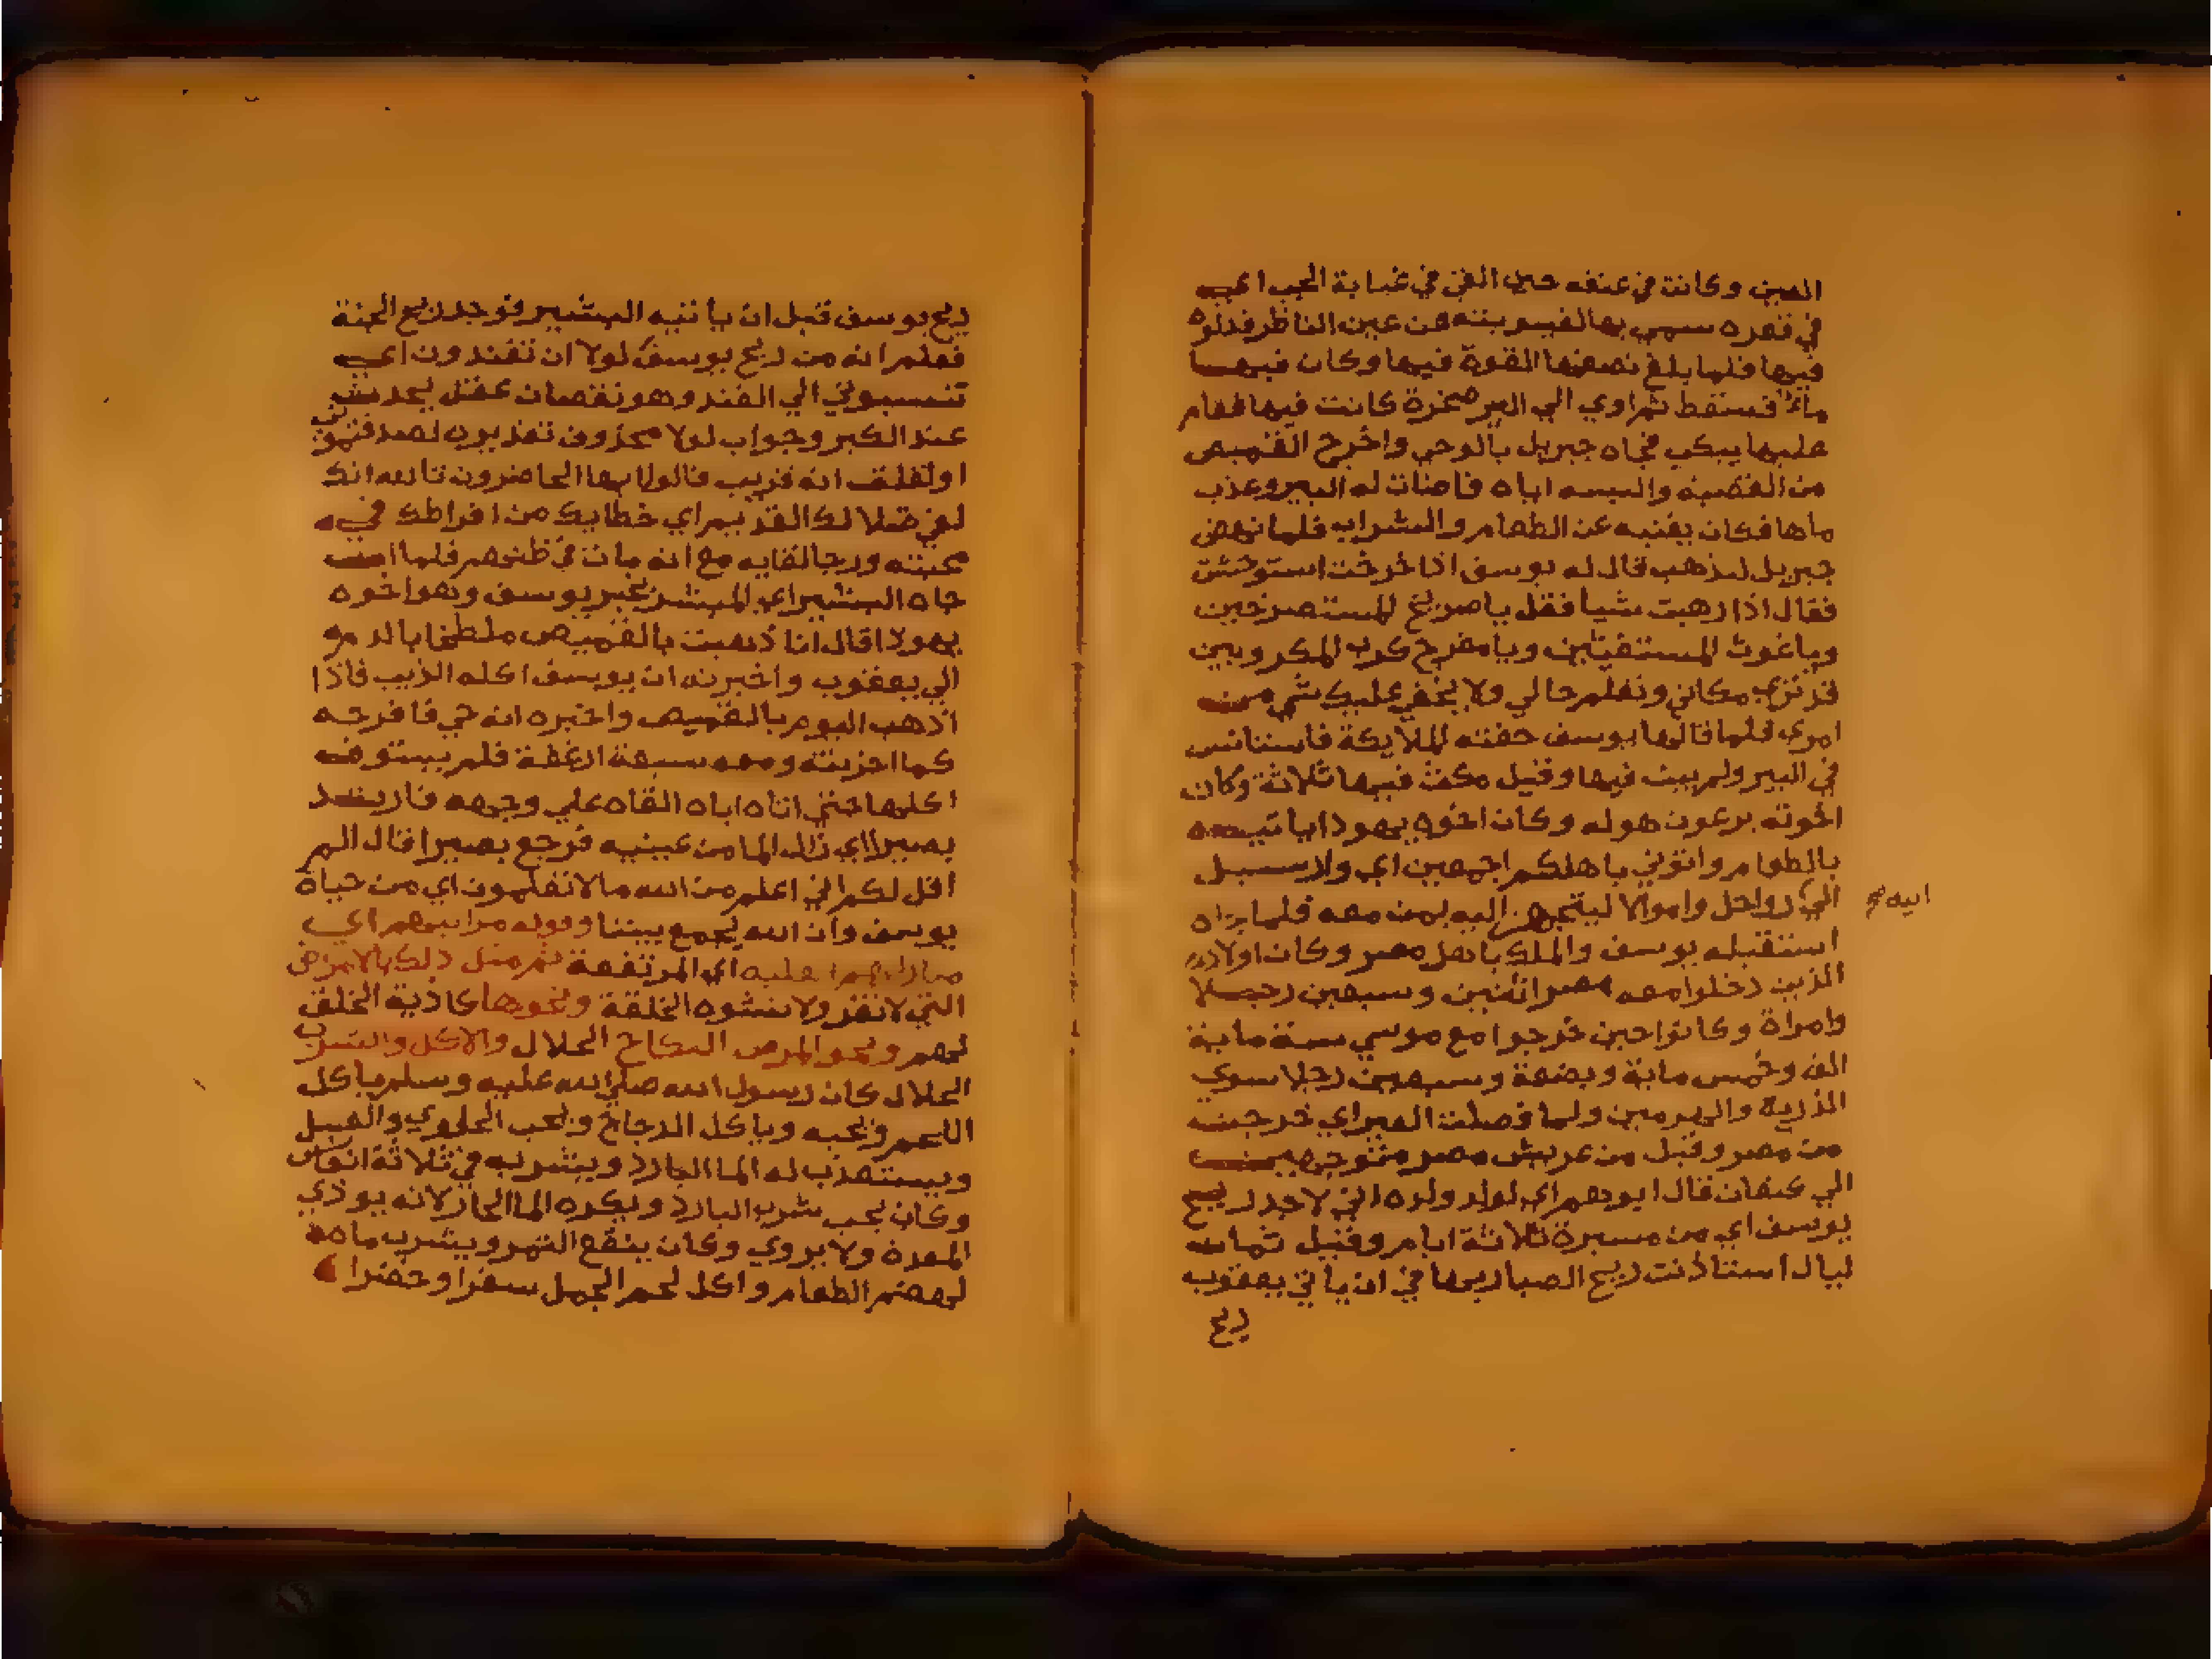 العين وكانت في عنقه حين القي في غيابة الجب اي
في قعره سمي بها لغيبوبته عن عين الناظر فدلوه
فيها فلما بلغ نصفها القوة فيها وكان فيها
ماء فسقط ثم اوي الي البير صخرة كانت فيها فقام
عليها يبكي فجاه جبريل بالوحي واخرج القميص
من القصبة والبسه اياه فاضات له البير وعذب
ماها فكان يغنيه عن الطعام والشراب فلما نهض
جبريل ليذهب قال له يوسف اذا خرجت استوحشت
فقال اذا رهبت شيا فقل يا صريخ المستصرخين
وياغوث المستغيثين ويا مفرج كرب المكروبين
قد تري مكاني وتعلم حالي ولا يخفي عليك شي من
امري فلما قالها يوسف حفته الملايكة فاستانس
في البير ولم يبت فيها وقيل مكث فيها ثلاثة وكان
اخوته يرعون حوله وكان اخوه يهودا ياتيه
بالطعام واتوني باهلكم اجمعين اي وارسل
الي ابيه رواحل واموالا ليتجهز اليه بمن معه فلما جاه
استقبله يوسف والملك باهل مصر وكان اولاده
الذين دخلوا معه مصر اثنين وسبعين رجلا
وامراة وكانوا حين خرجوا مع موسي ستة ماية
الف وخمس ماية وبضعة وسبعين رجلا سوي
الذرية والهرمين ولما فصلت العير اي خرجت
من مصر وقيل من عريش مصر متوجهة
الي كنعان قال ابوهم اي لولد ولده اني لاجد ريح
يوسف اي من مسيرة ثلاثة ايام وقيل ثمان
ليال استاذنت ريح الصبا ربها في ان ياتي يعقوب
ريح
ريح يوسف قبل ان ياتيه البشير فوجد ريح الجنة
فعلم انه من ريح يوسف لولا ان تفندون اي
تنسبوني الي الفند وهو نقصان عقل يحدث
عند الكبر وجواب لولا محذوف تقديره لصدقتموني
او لقلت انه قريب قالوا بها الحاضرون تالله انك
لفي ضلالك القديم اي خطايك من افراطك في
محبته ورجا لقايه مع انه مات في ظنهم فلما ان
جاه البشير اي المبشر بخبر يوسف وهو اخوه
يهودا قال انا ذهبت بالقميص ملطخا بالدم
الي يعقوب واخبرته ان يوسف اكله الذيب فاذا
اذهب اليوم بالقميص واخبره انه حي فافرحه
كما احزنته ومعه سبعة ارغفة فلم يستوف
اكلها حتي اتاه اباه القاه علي وجهه فارتد
بصيرا اي زال الما من عينيه فرجع بصيرا قال الم
اقل لكم اني اعلم من الله ما لا تعلمون اي من حياة
يوسف وان الله يجمع بيننا وقوله مراتبهم اي
منازلهم العلية اي المرتفعة ثم مثل ذلك بالامراض
التي لا تقذر ولا تشوه الخلقة ونحوها كاذية الخلق
لهم ونحو المرض النكاح الحلال والاكل والشرب
الحلال كان رسول الله صلي الله عليه وسلم ياكل
اللحم ويحبه وياكل الدجاج ويحب الحلوي والعسل
ويستعذب له الما البارد ويشربه في ثلاثة انفاس
وكان يحب شرب البارد ويكره الما الحار لانه يوذي
المعدة ولا يروي وكان ينقع التمر ويشرب ماه
لهضم الطعام واكل لحم الجمل سفرا وحضرا